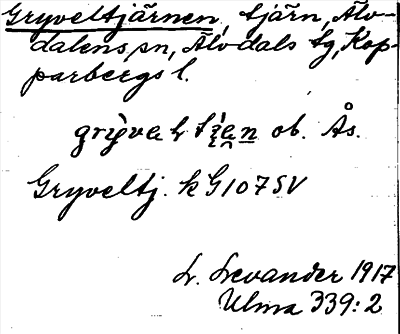 Gryveltjärnen, tjärn, Älv-
dalens sn, Älvdals tg, Kop-
parbergs l.
ob. Ås.
Gryveltj. k G107SV
L. Levander 1917
Ulma 339:2